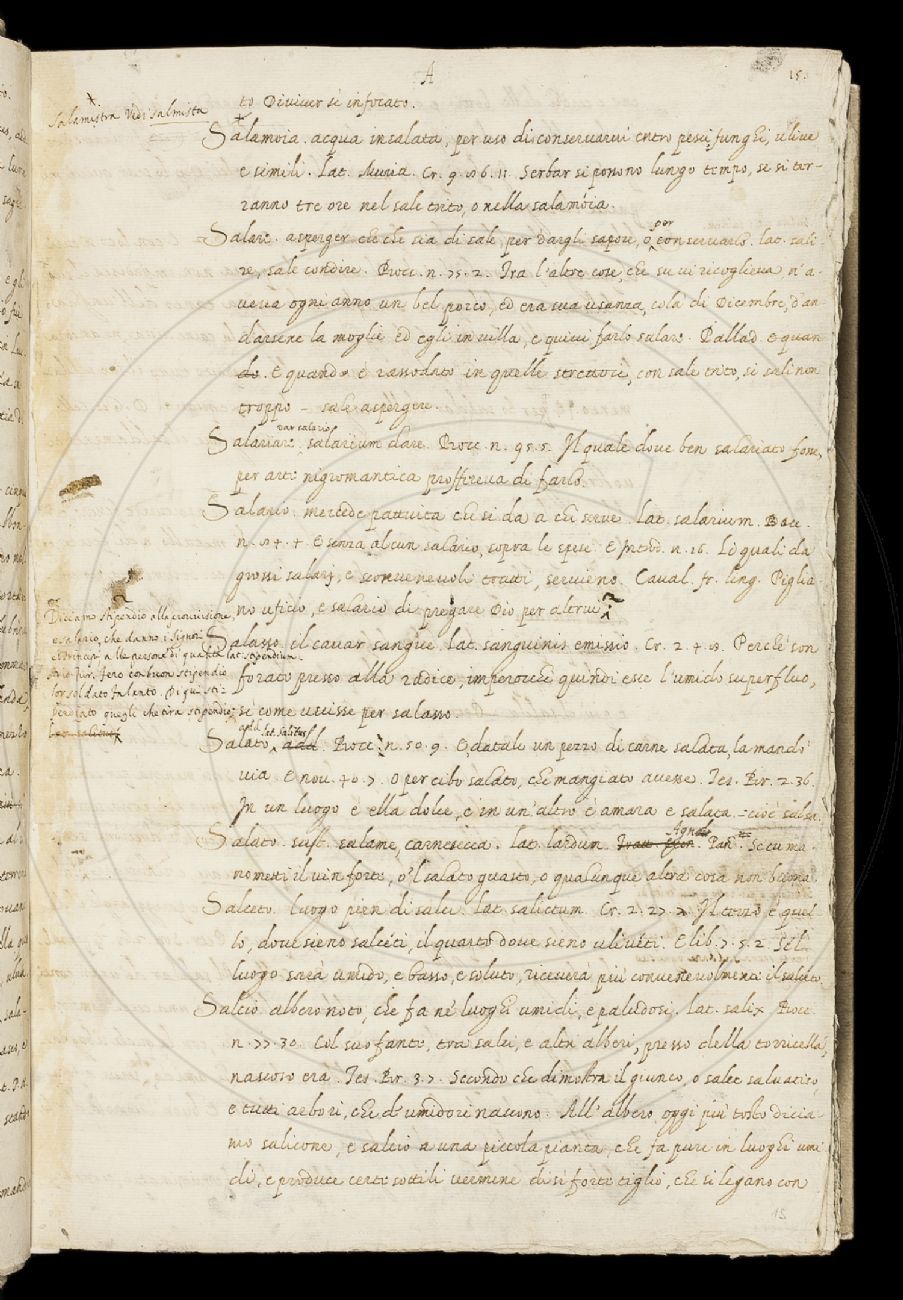 A
15.
Salamistra Vedi Salmista
to Diviner si infocato.
Salamoia. acqua insalata, per uso di conservarvi entro pesci, funghi, ulive
e simili. Lat. Muria. Cr. 9. 86. 11. Serbar si possono lungo tempo, se si ter-
ranno tre ore nel sale trito, o nella salamoia.
Salare. asperger che che sia di sale, per dargli sapore, o per conservarlo. lat. sali
re, sale condire. Bocc. n. 75. 2. Tra l'altre cose, che su vi ricoglieva n'a-
veva ogni anno un bel porco, ed era sua usanza, colà di Dicembre, d'an
darsene la moglie ed egli in villa, e quivi farlo salare. Pallad. e quan
do. E quando è rassodato in quelle strettoie, con sale trito, si sali non
troppo - sale aspergere.
Salariare. dar salario, salarium dare. Bocc. n. 95. 5. Il quale dove ben salariato fosse,
per arte nigromantica proffereva di farlo.
Salario. mercede pattuita che si da a chi serve. lat. salarium. Bocc.
n. 84. 4. E senza alcun salario, sopra le spese. E Introd. n. 16. Li quali da
grossi salarj, e sconvenevoli tratti, servieno. Caval. fr. ling. Piglia-
no uficio, e salario di pregare Dio per altrui
Diciamo stipendio alla provvisione,
e salario, che danno i Signori
e Principi alle persone di qualità lat. stipendium.
soldato Di qui sti-
pendiato quegli che tira stipendio
Salasso. il cavar sangue. lat. sanguinis emissio. Cr. 2. 4. 8. Perchè son
forato presso alla radice, imperocchè quindi esce l'umido superfluo,
si come uscisse per salasso.
Salato. add. lat. salitus. Bocc. n. 50. 9. E, datale un pezzo di carne salata, la mandò
via. E nov. 40. 7. O per cibo salato, che mangiato avesse. Tes. Br. 2. 36.
In un luogo è ella dolce, e in un'altro è amara e salata - cioè salsa.
Salato. sust. salame, carnesecca. lat. lardum. Agn. Pan. Se tu ma
nometti il vin forte, o 'l salato guasto, o qualunque altra cosa non buona
Salceto. luogo pien di salci. lat. salictum. Cr. 2. 27. 2. Il terzo è quel
lo, dove sieno salceti, il quarto dove sieno uliveti. E lib. 7. 5. 2. Se 'l
luogo sarà umido, e basso, e soluto, riceverà più convenevolmente il salceto.
Salcio. albero noto, che fa ne' luoghi umidi, e paludosi. Lat. salix. Bocc.
n. 77. 30. Col suo fante, tra salci, e altri alberi, presso della torricella,
nascoso era. Tes. Br. 3. 7. Secondo che dimostra il giunco, o salce salvatico,
e tutti arbori, che d'umidori nascono. All'albero oggi più tosto dicia-
mo salicone, e salcio a una piccola pianta, che fa pure in luoghi umi
di, e produce certe sottili vermene di sì forte tiglio, che si legano con
15